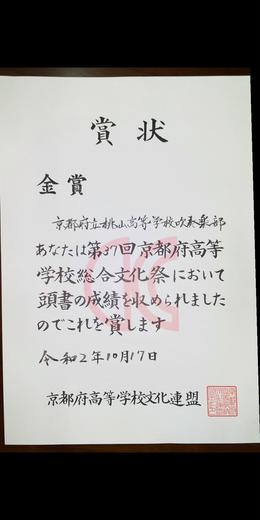 賞状
金賞
京都府立桃山高等学校吹奏楽部
あなたは第37回京都府高等
学校総合文化祭において
頭書の成績を収められました
のでこれを賞します
令和2年10月17日
京都府高等学校文化連盟